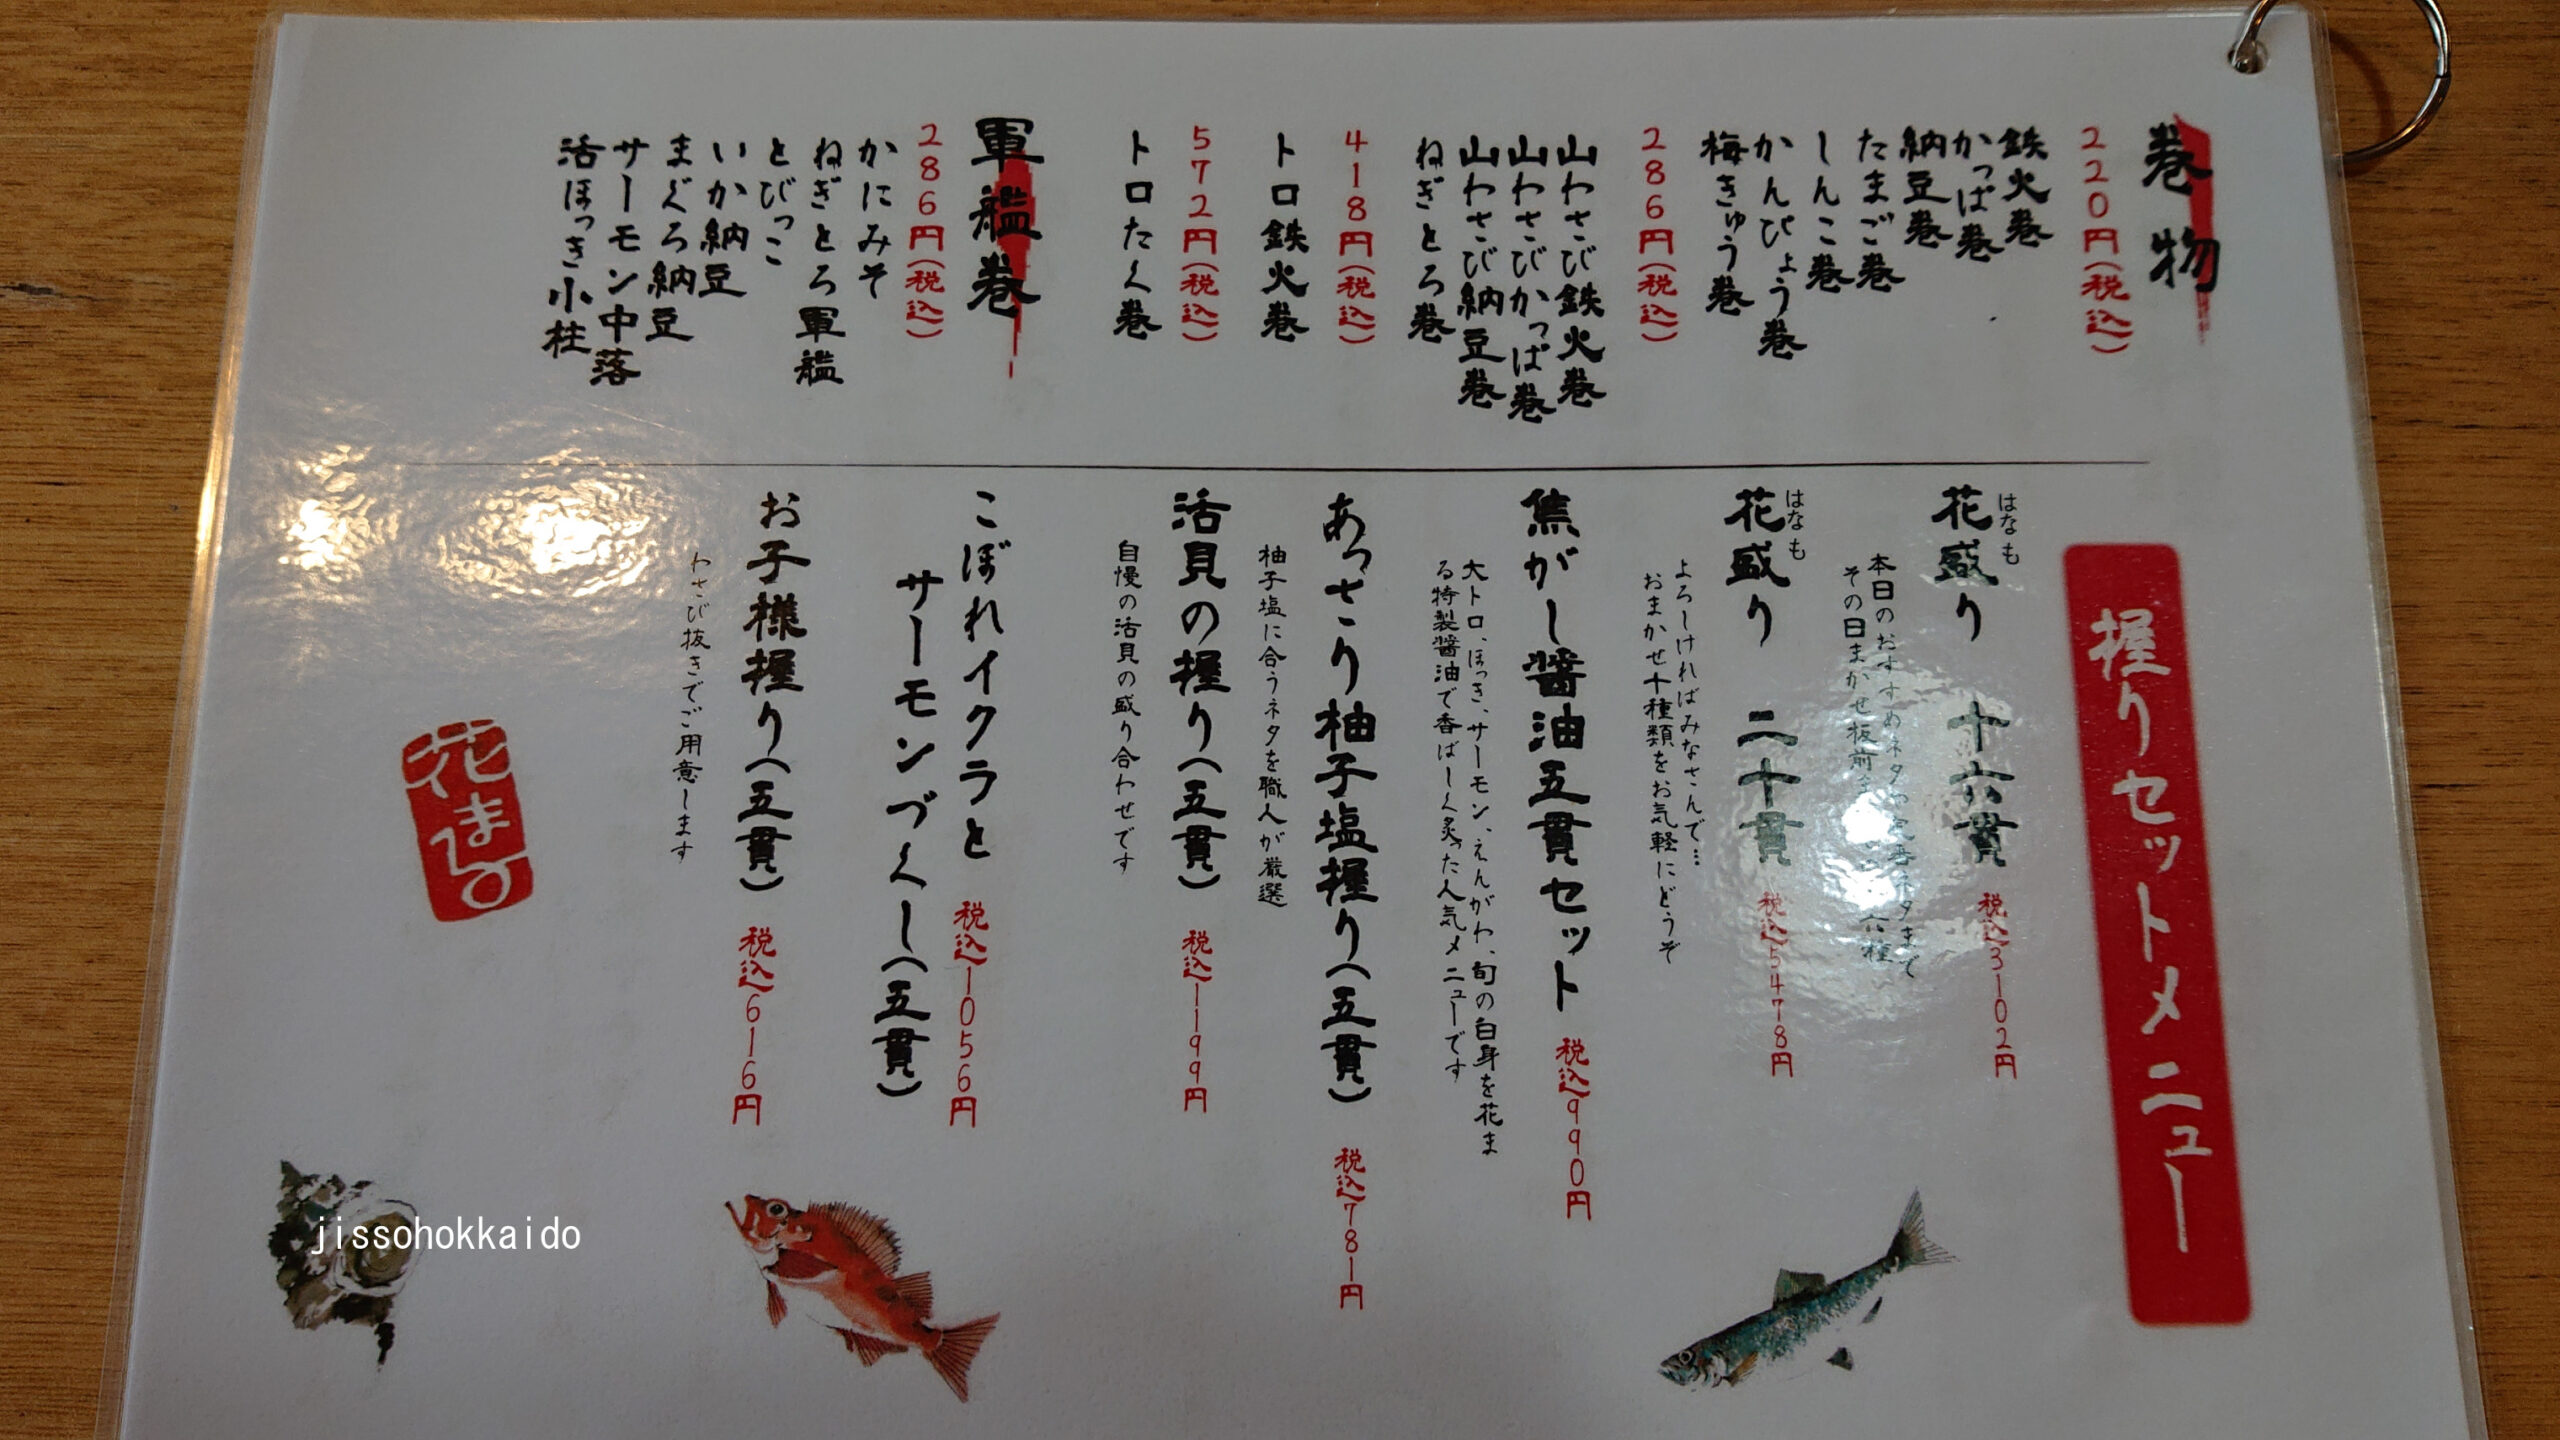 巻物
220円(税込)
鉄火巻
かっぱ巻
納豆巻
たまご巻
しんこ巻
かんぴょう巻
梅きゅう巻
286円(税込)
山わさび鉄火巻
山わさびかっぱ巻
山わさび納豆巻
ねぎとろ巻
418円(税込)
トロ鉄火巻
572円(税込)
トロたく巻
軍艦巻
286円(税込)
かにみそ
ねぎとろ軍艦
とびっこ
いか納豆
まぐろ納豆
サーモン中落
活ほっき小柱
握りセットメニュー
はなも
花盛り 十六貫 税込3102円
本日のおすすめネタや定番ネタまで
その日まかせ板前
はなも
花盛り 二十貫 税込5478円
よろしければみなさんで…
おまかせ十種類をお気軽にどうぞ
焦がし醤油五貫セット 税込990円
大トロ、ほっき、サーモン、えんがわ、旬の白身を花ま
る特製醤油で香ばしく炙った人気メニューです
あっさり柚子塩握り(五貫) 税込781円
柚子塩に合うネタを職人が厳選
活貝の握り(五貫) 税込1199円
自慢の活貝の盛り合わせです
こぼれイクラと 税込1056円
サーモンづくし(五貫)
お子様握り(五貫) 税込616円
わさび抜きでご用意します
花まる
jissohokkaido